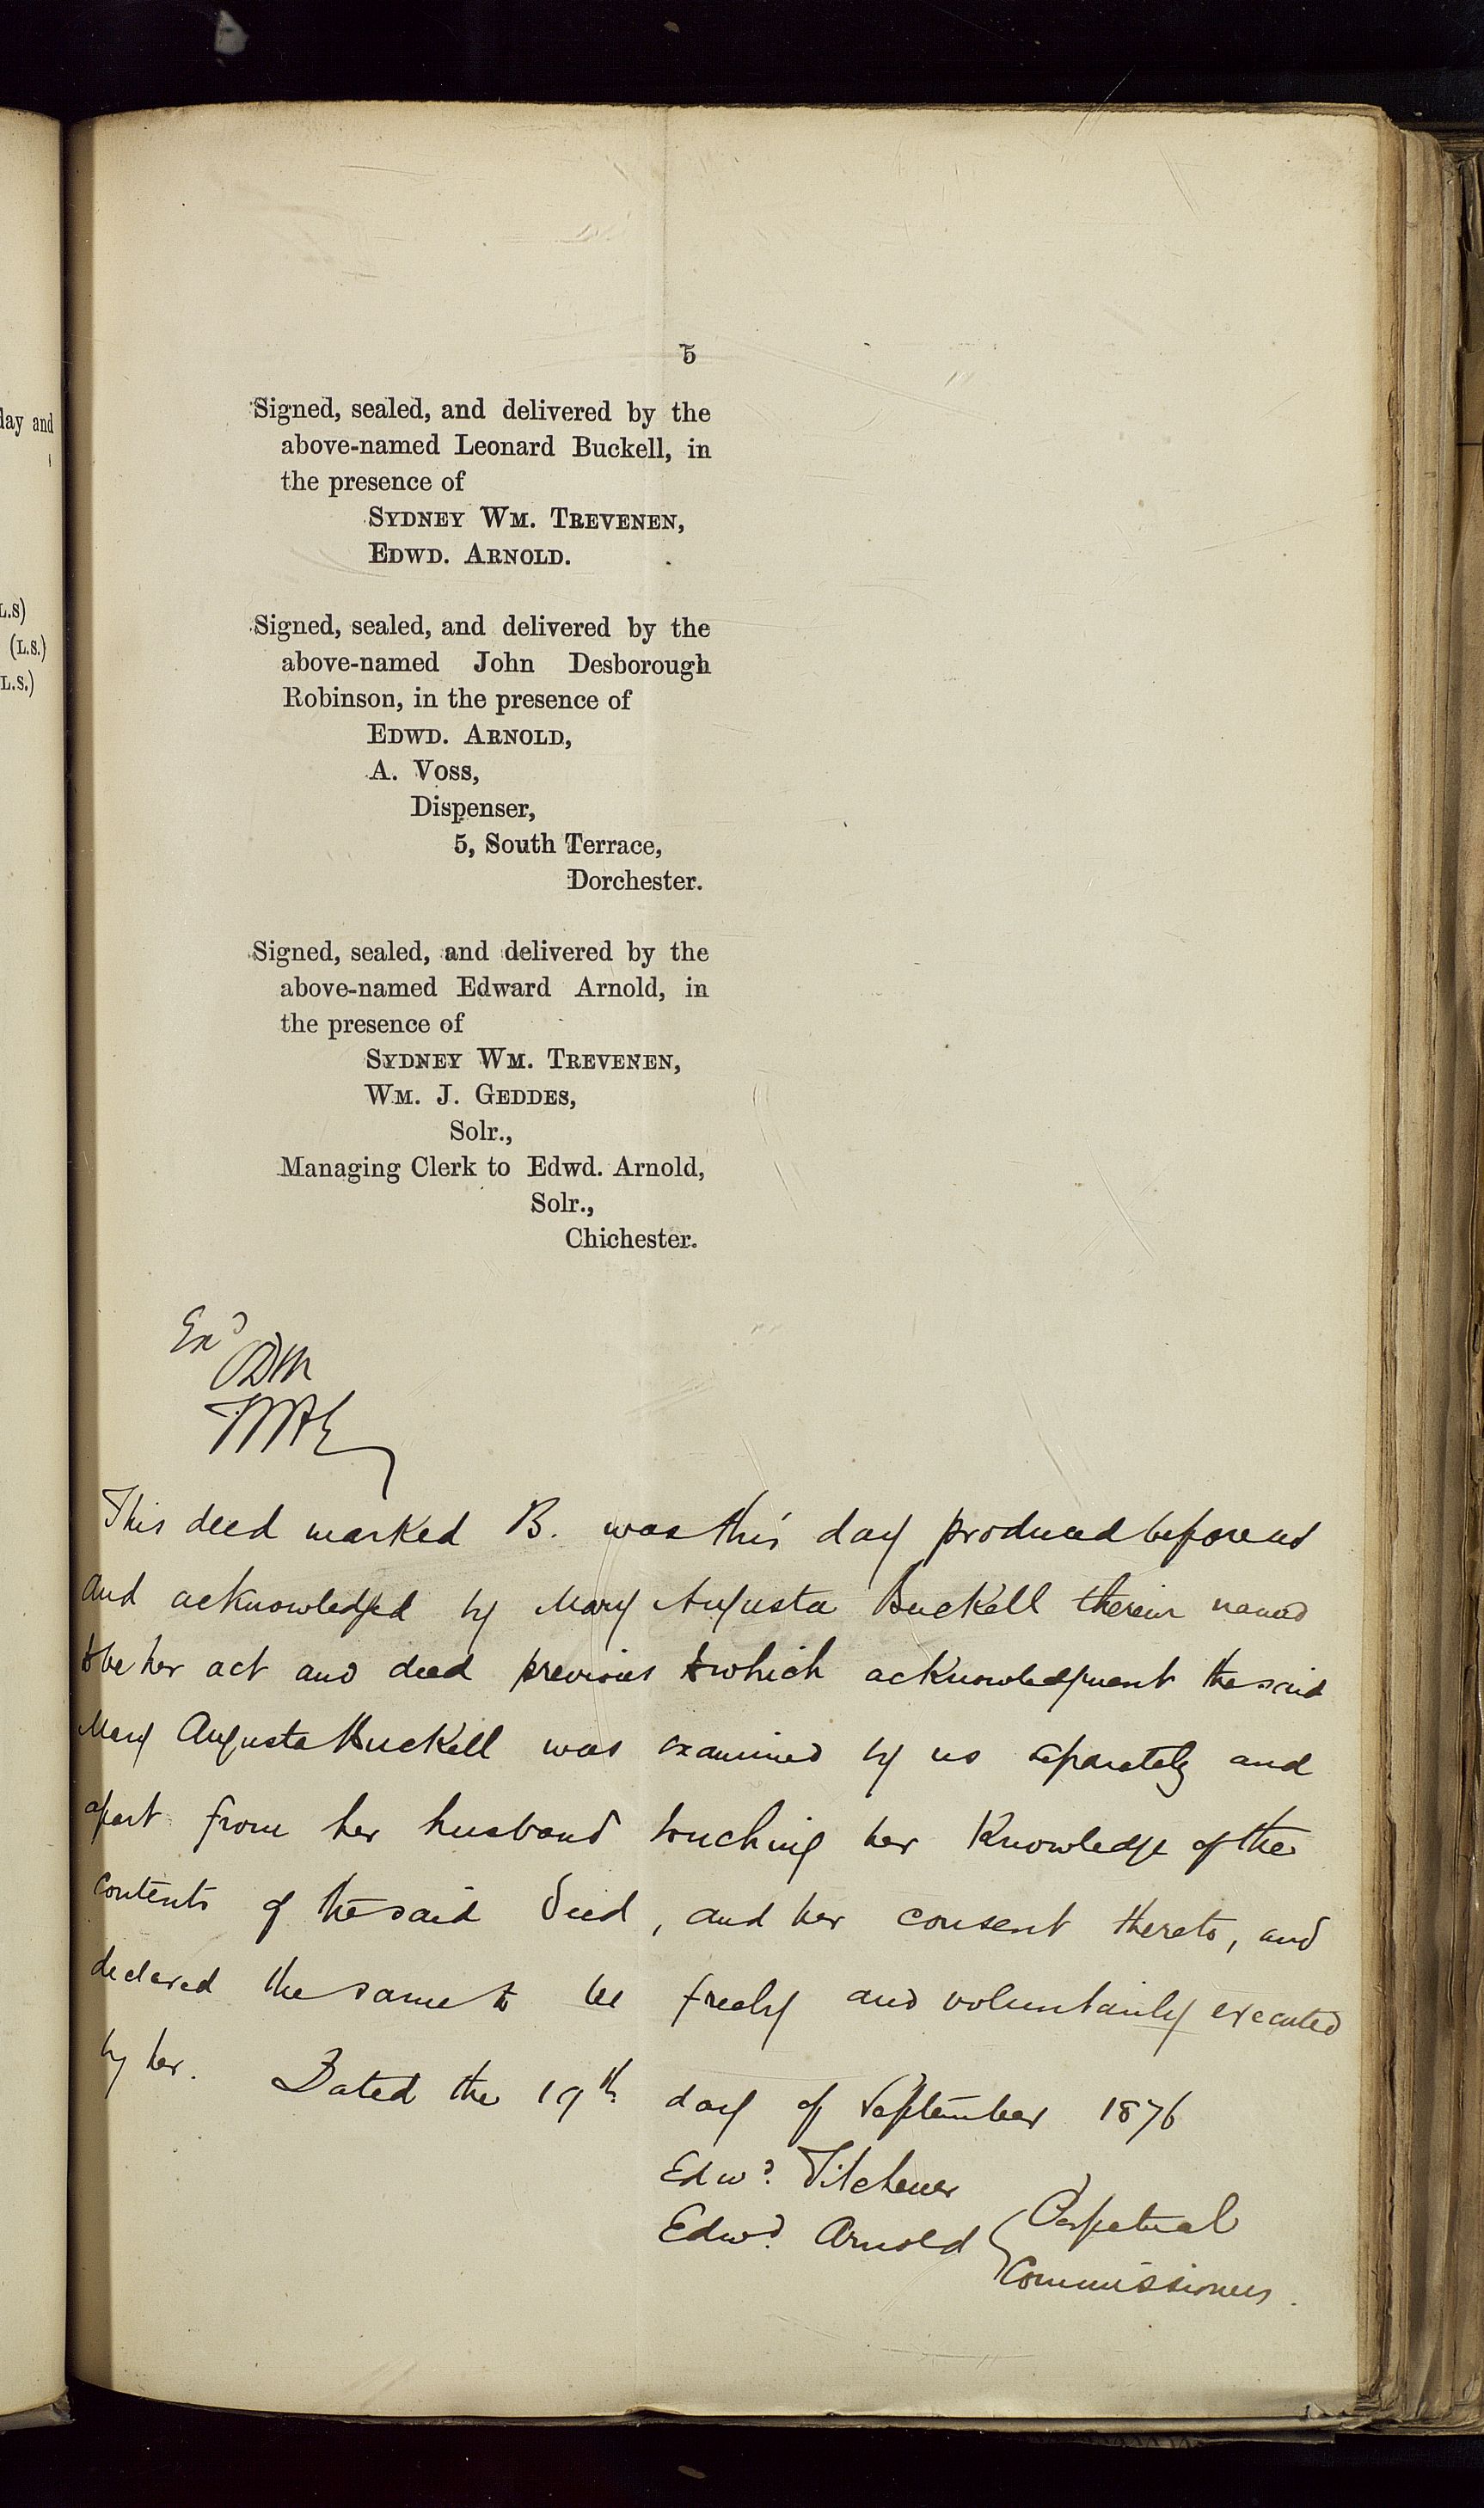 day and
L.S)
(L.S.)
L.S.)
5
Signed, sealed, and delivered by the
above-named Leonard Buckell, in
the presence of
SYDNEY WM. TREVENEN,
EDWD. ARNOLD.
Signed, sealed, and delivered by the
above-named John Desborough
Robinson, in the presence of
EDWD. ARNOLD,
A. Voss,
Dispenser,
5, South Terrace,
Dorchester.
Signed, sealed, and delivered by the
above-named Edward Arnold, in
the presence of
SYDNEY WM. TREVENEN,
WM. J. GEDDES,
Solr.,
Managing Clerk to Edwd. Arnold,
Solr.,
Chichester.
Exd
This deed marked B. was this day produced before us
and acknowledged by Mary Augusta Buckell therein named
to be her act and deed previous to which acknowledgment the said
Mary Augusta Buckell was examined by us separately and
apart from her husband touching her Knowledge of the
contents of the said deed, and her consent thereto, and
declared the same to be freely and voluntarily executed
by her. Dated the 19th day of September 1876
Edwd. Titchener
Edwd. Arnold
Perpetual
Commissioners.